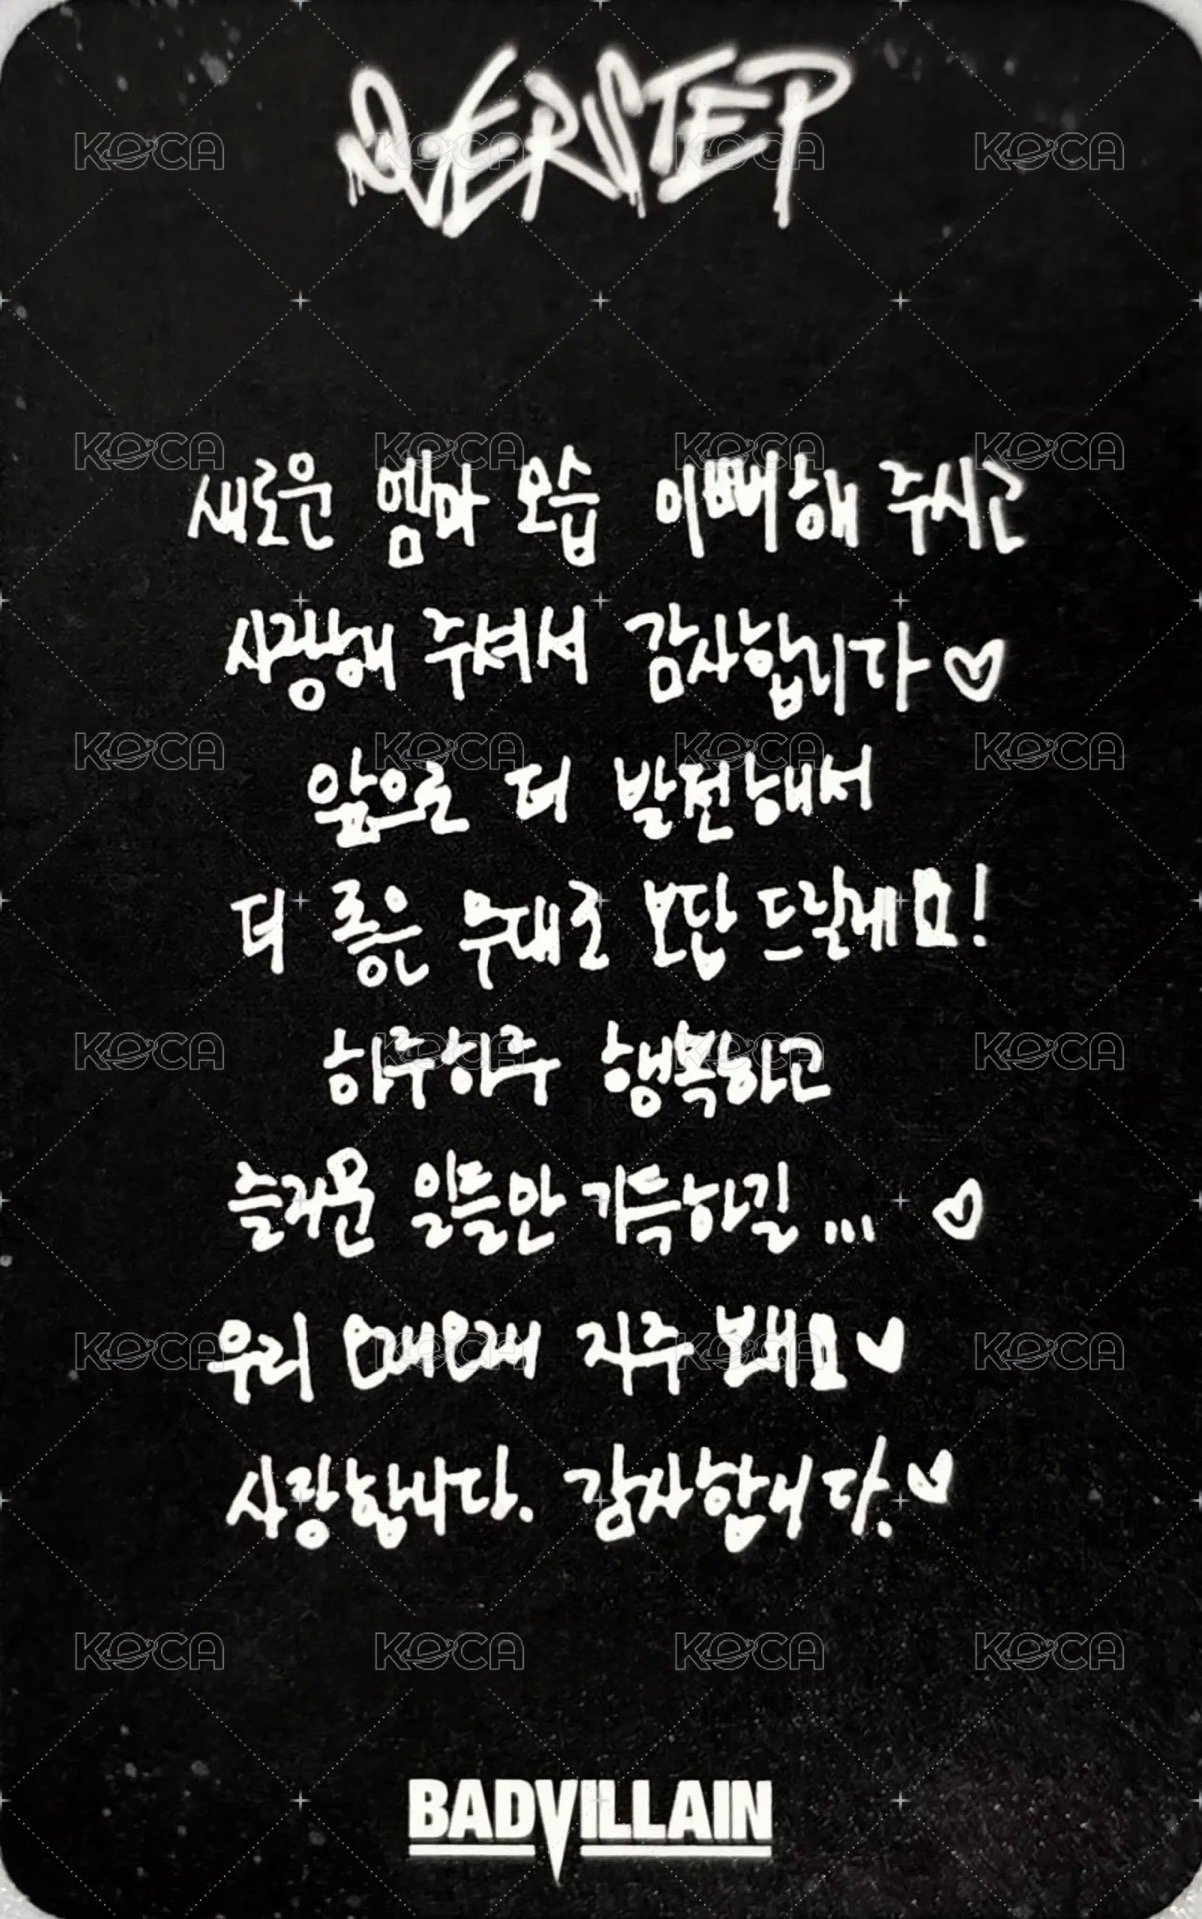 OVERSTEP
새로운 엠마 모습 이뻐해 주시고
사랑해 주셔서 감사합니다♡
앞으로 더 발전해서
더 좋은 무대로 보답 드릴게요!
하루하루 행복하고
즐거운 일들만 가득하길... ♡
우리 오래오래 자주 봐요♥
사랑합니다. 감사합니다.♥
BADVILLAIN
KOCA